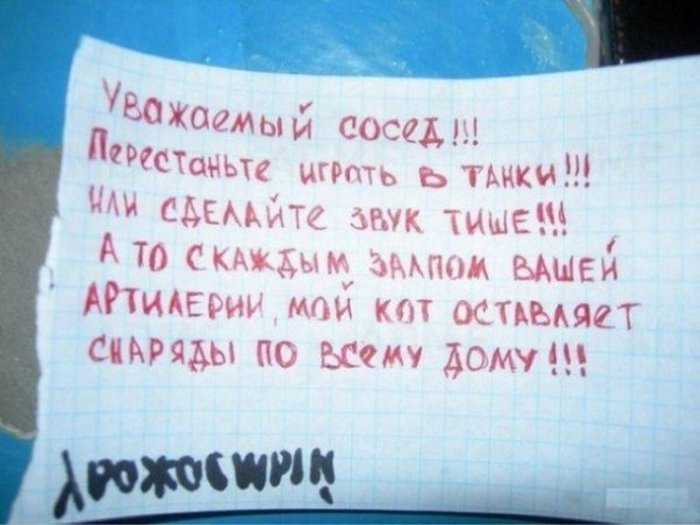 Уважаемый сосед!!!
Перестаньте играть в танки!!!
Или сделайте звук тише!!!
А то с каждым залпом вашей
артилерии, мой кот оставляет
снаряды по всему дому!!!